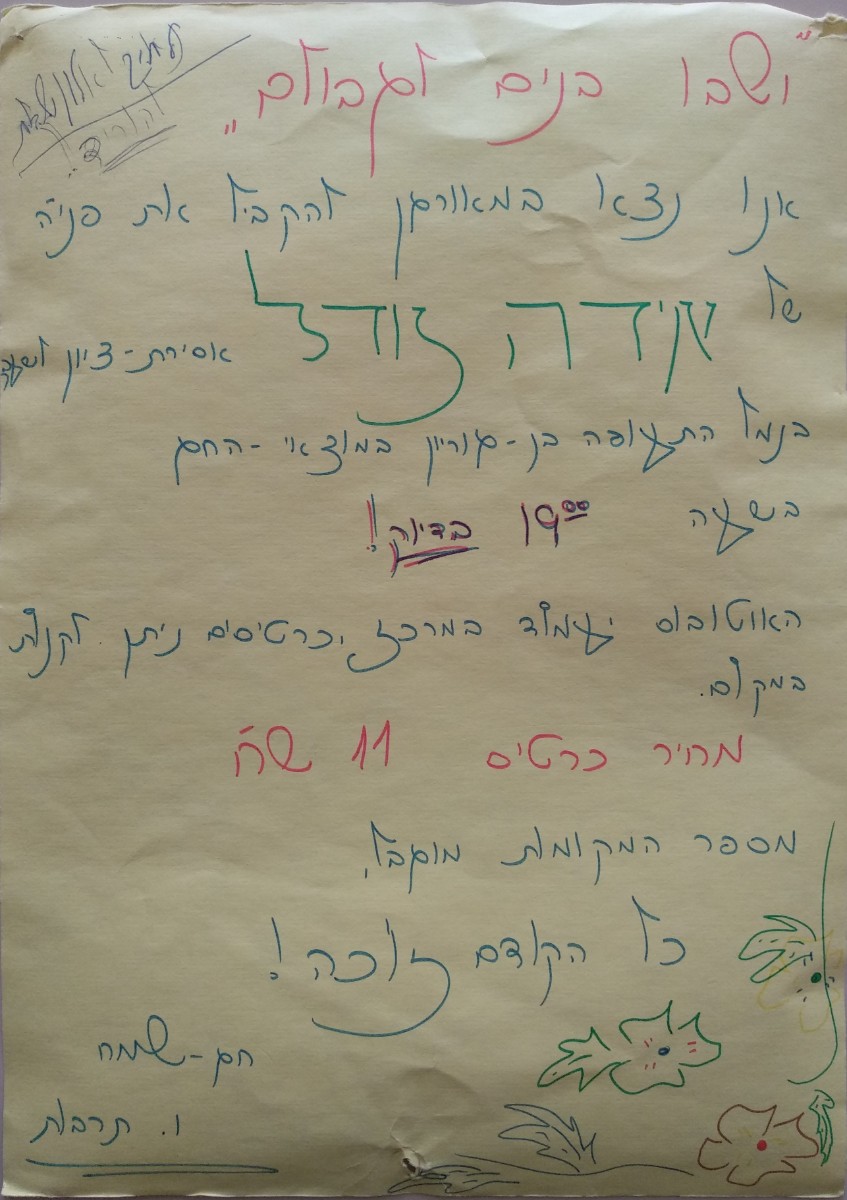 "ושבו בנים לגבולם"
אנו נצא במאורגן להקביל את פניה
של
אידה נודל אסירת-ציון לשעבר
בנמל התעופה בן-גוריון במוצאי-החג
בשעה 19⁰⁰ בדיוק!
האוטובוס יעמוד במרכז, כרטיסים ניתן לקנות
במקום.
מחיר כרטיס 11 ש"ח
מספר המקומות מוגבל.
כל הקודם זוכה!
חג-שמח
ו. תרבות